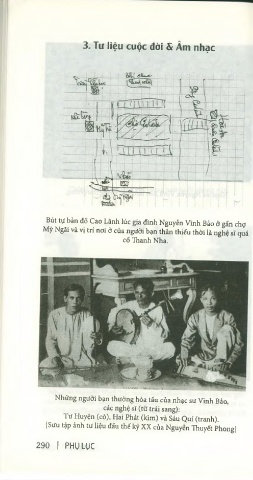 3. Tư liệu cuộc đời & Âm nhạc
Bút tự bản đồ Cao Lãnh lúc gia đình Nguyễn Vĩnh Bảo ở gần chợ
Mỹ Ngãi và vị trí nơi ở của người bạn thân thiếu thời là nghệ sĩ quá
cố Thanh Nha.
Những người bạn thường hòa tấu của nhạc sư Vĩnh Bảo,
các nghệ sĩ (từ trái sang):
Tư Huyện (cò), Hai Phát (kìm) và Sáu Quí (tranh).
[Sưu tập ảnh tư liệu đầu thế kỷ XX của Nguyễn Thuyết Phong]
290 | PHỤ LỤC